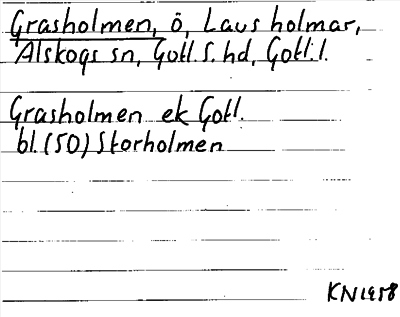 Grasholmen, ö, Laus holmar,
Alskogs sn, Gotl. S. hd, Gotl. l.
Grasholmen ek Gotl.
bl. (50) Storholmen
KN 1958